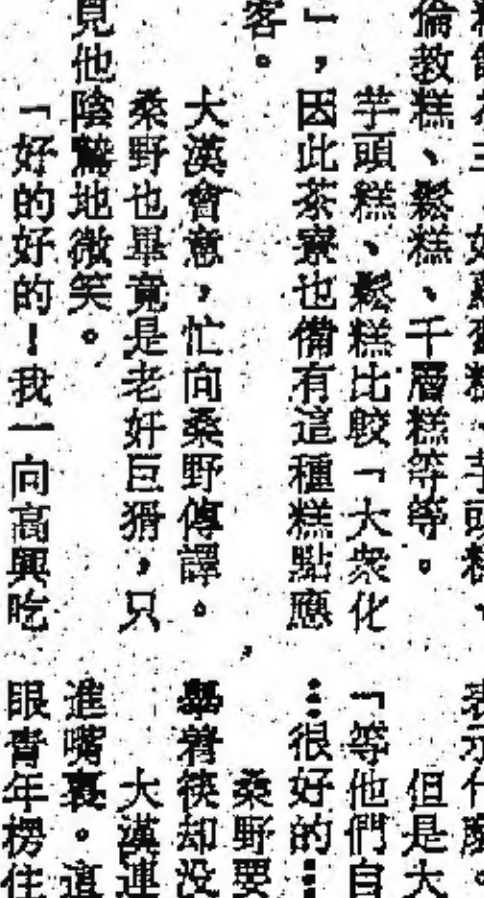 倫教糕、鬆糕、千層糕等等。
芋頭糕、鬆糕比較「大衆化
」，因此茶寮也備有這種糕點應
客。
大漢會意，忙向桑野傳譯。
桑野也畢竟是老奸巨猾，只
見他陰鷙地微笑。
「好的好的！我一向高興吃
表示什麽。
但是大
「等他們自
…很好的…
桑野要
舉着筷却没
大漢連
進嘴裏。這
眼青年楞住